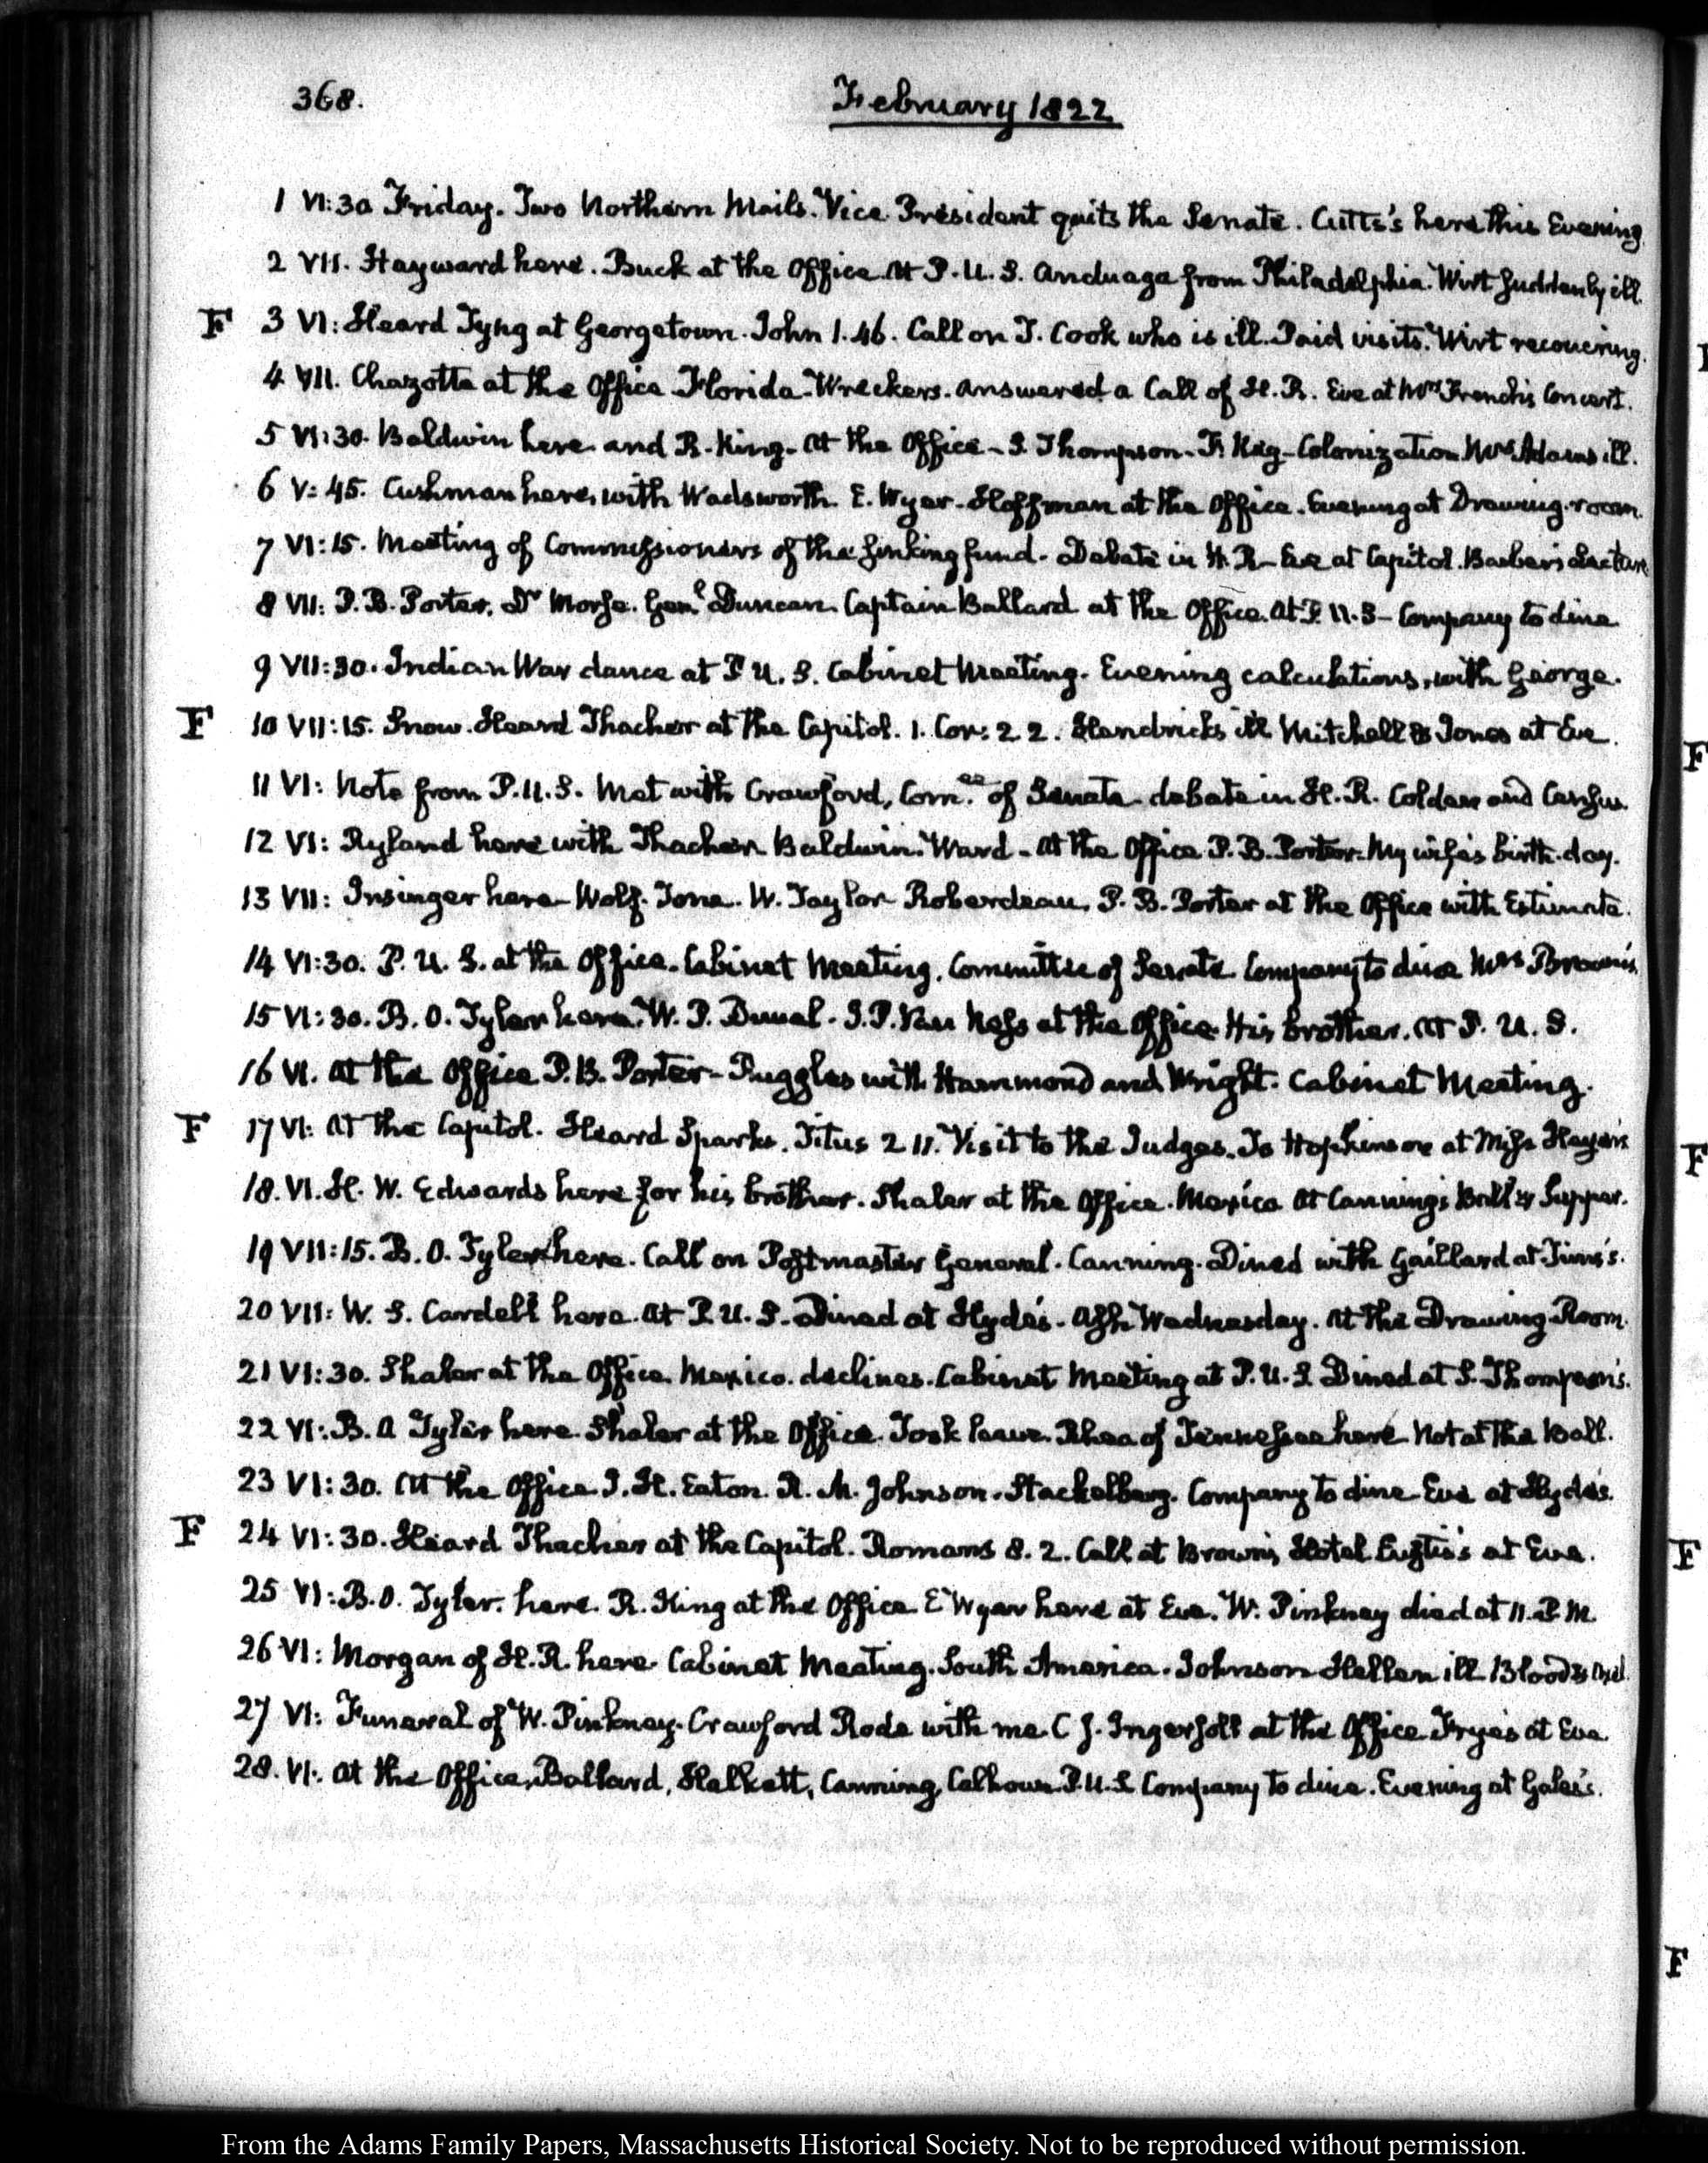 368.
February 1822
1 VI:30 Friday. Two Northern Mails. Vice President quits the Senate. Cutts's here this Evening
2 VII. Hayward here. Buck at the Office. At P.U.S. Anduaga from Philadelphia. Wirt suddenly ill.
F 3 VI: Heard Tyng at Georgetown. John 1.46. Call on J. Cook who is ill. Paid visits. Wirt recovering.
4 VII. Chazotte at the Office Florida-Wreckers. answered a Call of H.R. Eve at Mrs French's Concert.
5 VI:30. Baldwin here and R. King. At the Office - S. Thompson - F. Key - Colonization Mrs Adams ill.
6 V:45. Cushman here, with Wadsworth. E. Wyer. Hoffman at the Office. Evening at Drawing-room.
7 VI:15. Meeting of Commissioners of the sinking fund. Debate in H.R - Eve at Capitol. Barber's Lecture
8 VII: P.B. Porter. Dr Morse. Genl Duncan. Captain Ballard at the Office. At P.U.S - Company to dine
9 VII:30. Indian War dance at P.U.S. Cabinet Meeting. Evening calculations, with George.
F 10 VII:15. Snow. Heard Thacher at the Capitol. 1. Cor: 2 2. Hendricks ill Mitchell & Jones at Eve.
11 VI: Note from P.U.S. Met with Crawford, Com.ee of Senate debate in H.R. Colden and Census
12 VI: Ryland here with Thacher Baldwin. Ward - At the Office P.B. Porter. My wife's birth-day.
13 VII: Insinger here - Wolf. Tone. W. Taylor Roberdeau. P.B. Porter at the Office with Estimate.
14 VI:30. P.U.S. at the Office. Cabinet Meeting. Committee of Senate Company to dine Mrs Brown's
15 VI:30. B.O. Tyler here. W.P. Duval. J.P. Van Ness at the Office. His brother. At P.U.S.
16 VI. At the Office P.B. Porter - Ruggles with Hammond and Wright. Cabinet Meeting.
F 17 VI: At the Capitol. Heard Sparks. Titus 2 11. Visit to the Judges. To Hopkinson at Miss Heyer's
18. VI. H.W. Edwards here for his brother. Shaler at the Office. Mexico At Canning's Ball & Supper.
19 VII:15. B.O. Tyler here. Call on Postmaster General. Canning. Dined with Gaillard at Tims's.
20 VII: W.S. Cardell here. At P.U.S. Dined at Hyde's. Ash Wednesday. At the Drawing Room.
21 VI:30. Shaler at the Office. Mexico. declines. Cabinet Meeting at P.U.S. Dined at S. Thompson's.
22 VI: B.O Tyler here. Shaler at the Office. Took leave. Rhea of Tennessee here Not at the Ball.
23 VI:30. At the Office J.H. Eaton. R.M. Johnson. Stackelberg. Company to dine Eve at Hyde's.
F 24 VI:30. Heard Thacher at the Capitol. Romans 8.2. Call at Brown's Hotel. Eustis's at Eve.
25 VI: B.O. Tyler. here. R. King at the Office E Wyer here at Eve. W. Pinkney died at 11. P.M.
26 VI: Morgan of H.R. here. Cabinet Meeting. South America. Johnson Hellen ill
27 VI: Funeral of W. Pinkney. Crawford Rode with me. C J. Ingersoll at the Office Frye's at Eve.
28. VI: At the Office, Ballard, Halkett, Canning, Calhoun. P.U.S. Company to dine. Evening at Gales's.
F
F
F
F
From the Adams Family Papers, Massachusetts Historical Society. Not to be reproduced without permission.